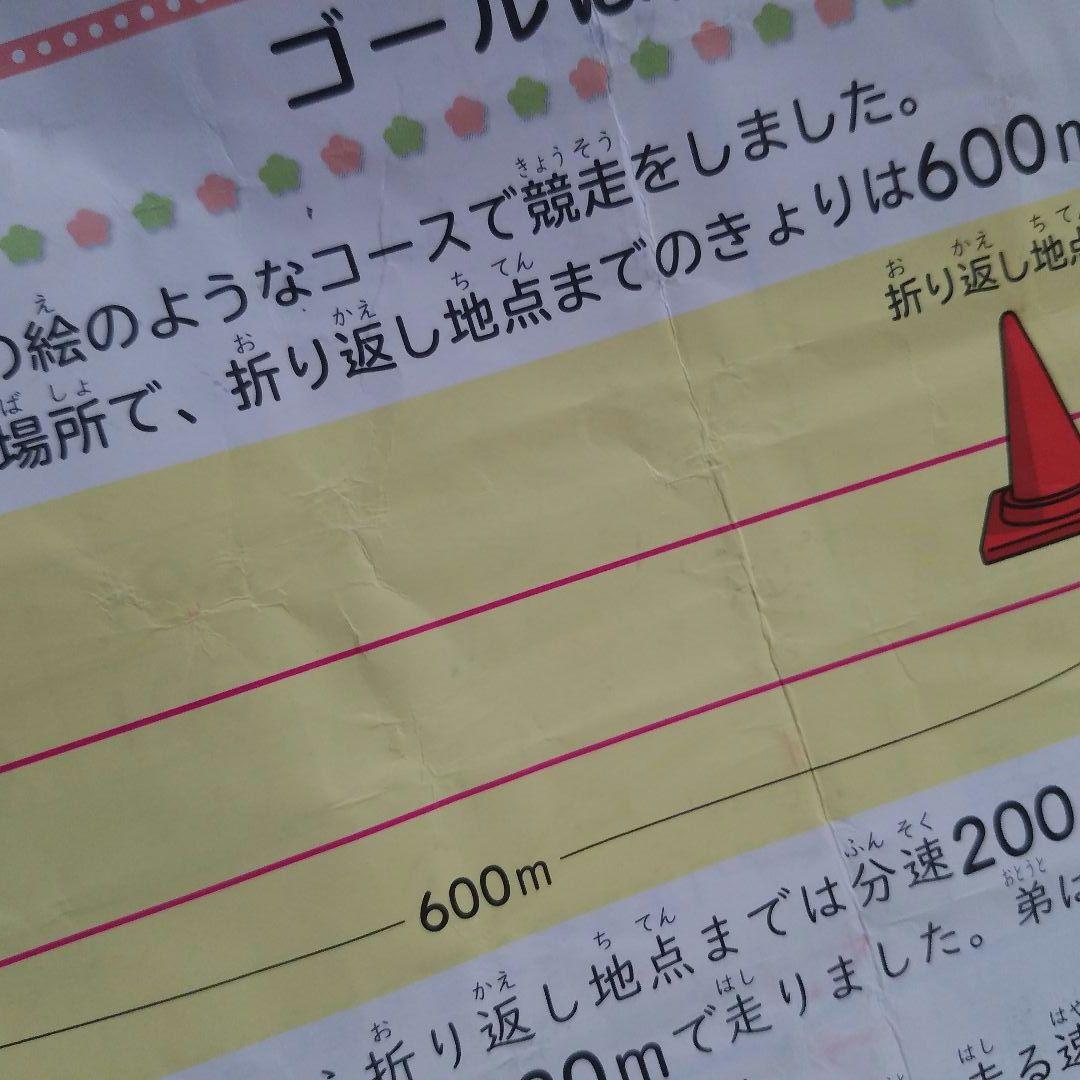 ゴールは
絵のようなコースで競走をしました。
場所で、折り返し地点までのきょりは600m
折り返し地点
600m
折り返し地点までは分速200
0mで走りました。弟は
走る速